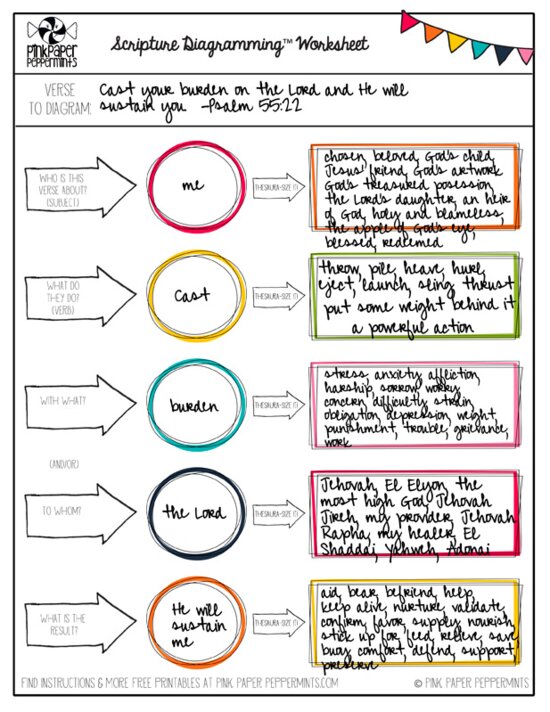 PINKPAPER
PEPPERMINTS
Scripture Diagramming™ Worksheet
VERSE
TO DIAGRAM:
Cast your burden on the Lord and He will
sustain you -Psalm 55:22
WHO IS THIS
VERSE ABOUT?
(SUBJECT)
me
THESAURA-SIZE IT!
chosen, beloved, God's child,
Jesus' friend, God's artwork
God's treasured posession,
the Lord's daughter, an heir
of God, holy and blameless,
the apple of God's eye,
blessed, redeemed
WHAT DO
THEY DO?
(VERB)
Cast
THESAURA-SIZE IT!
throw, pile, heave, hurl,
eject, launch, sling, thrust
put some weight behind it
a powerful action
WITH WHAT?
burden
THESAURA-SIZE IT!
stress, anxiety, affliction,
harship, sorrow, worry,
concern, difficulty, strain,
obligation, depression, weight,
punishment, trouble, grievance,
work
(AND/OR)
TO WHOM?
the Lord
THESAURA-SIZE IT!
Jehovah, El Elyon, the
most high God, Jehovah
Jireh, my provider, Jehovah
Rapha, my healer, El
Shaddai, Yahweh, Adonai
WHAT IS THE
RESULT?
He will
sustain
me
THESAURA-SIZE IT!
aid, bear, befriend, help,
keep alive, nurture, validate,
confirm, favor, supply, nourish,
stick up for, feed, relieve, save,
buoy, comfort, defend, support,
preserve
FIND INSTRUCTIONS & MORE FREE PRINTABLES AT PINK PAPER PEPPERMINTS.COM
© PINK PAPER PEPPERMINTS